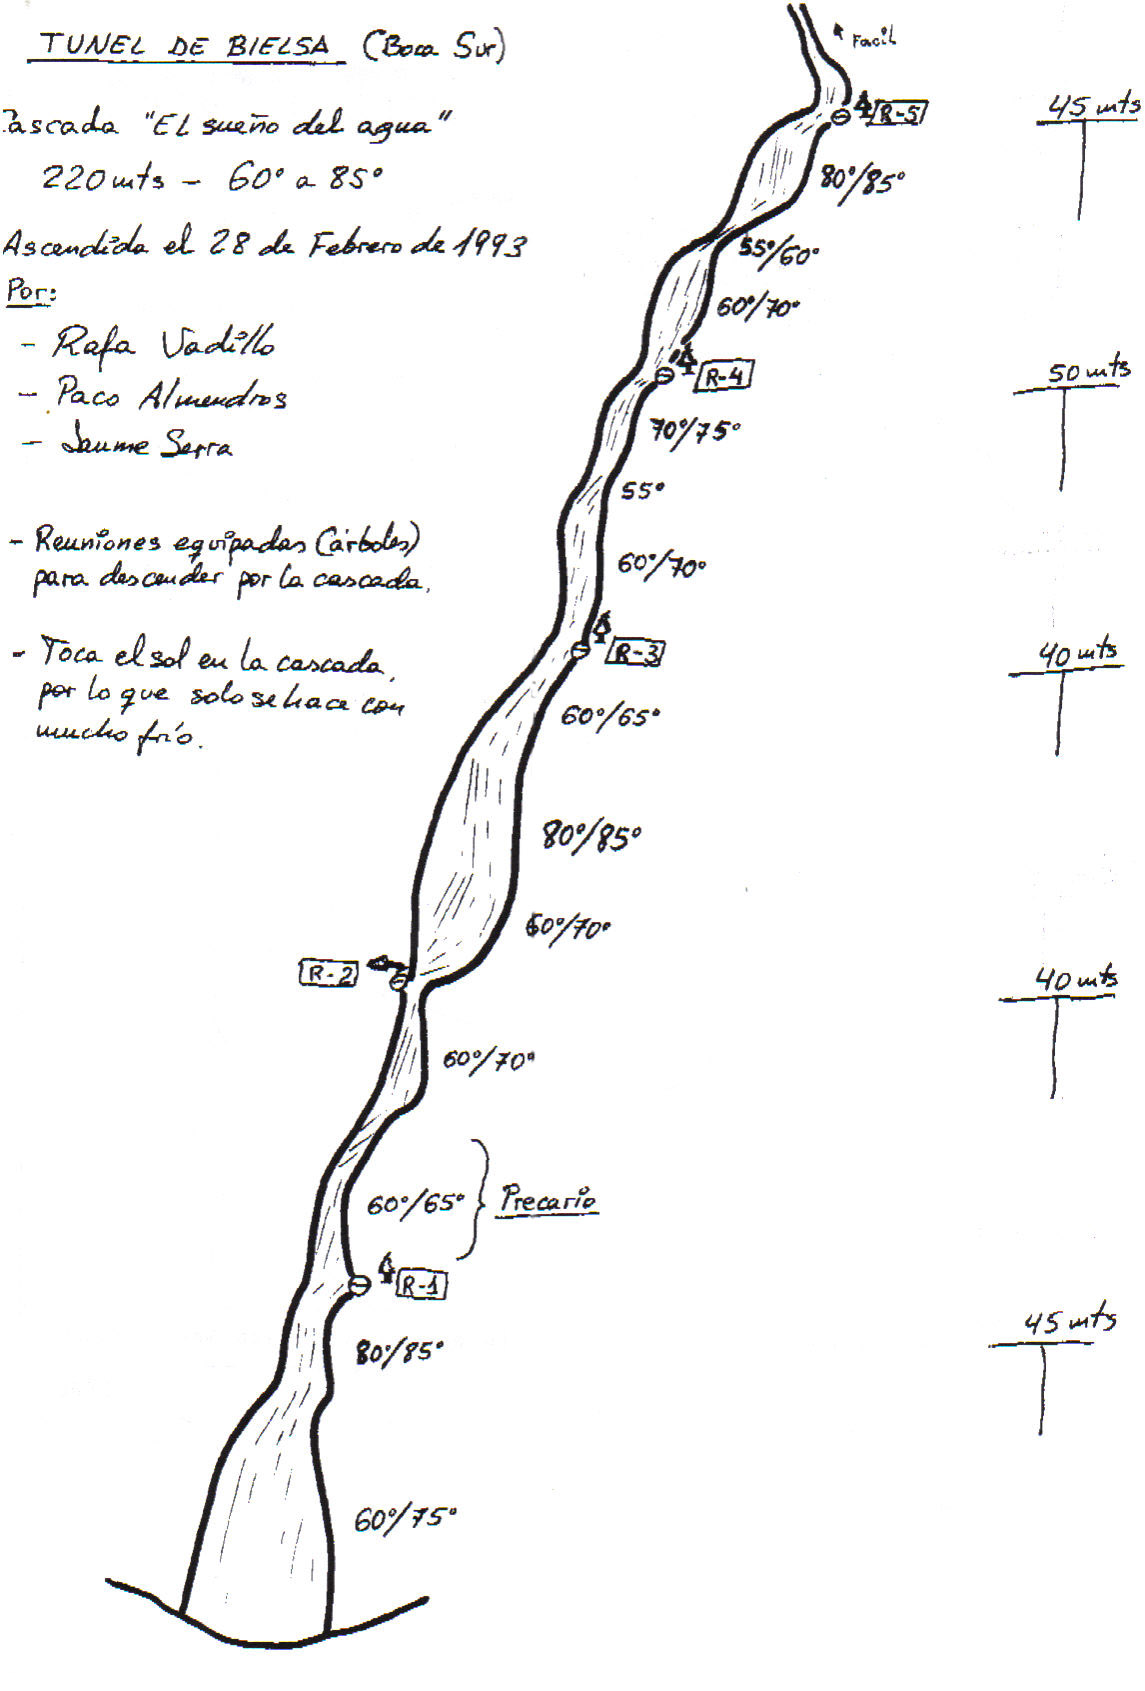 TUNEL DE BIELSA (Boca Sur)
Cascada "EL sueño del agua"
220 mts - 60° a 85°
Ascendida el 28 de Febrero de 1993
Por:
- Rafa Vadillo
- Paco Almendros
- Jaume Serra
- Reuniones equipadas (árboles)
para descender por la cascada.
- Toca el sol en la cascada,
por lo que solo se hace con
mucho frío.
Facil
R-5
45 mts
80°/85°
55°/60°
60°/70°
R-4
50 mts
70°/75°
55°
60°/70°
R-3
40 mts
60°/65°
80°/85°
60°/70°
R-2
40 mts
60°/70°
60°/65°
Precario
R-1
45 mts
80°/85°
60°/75°